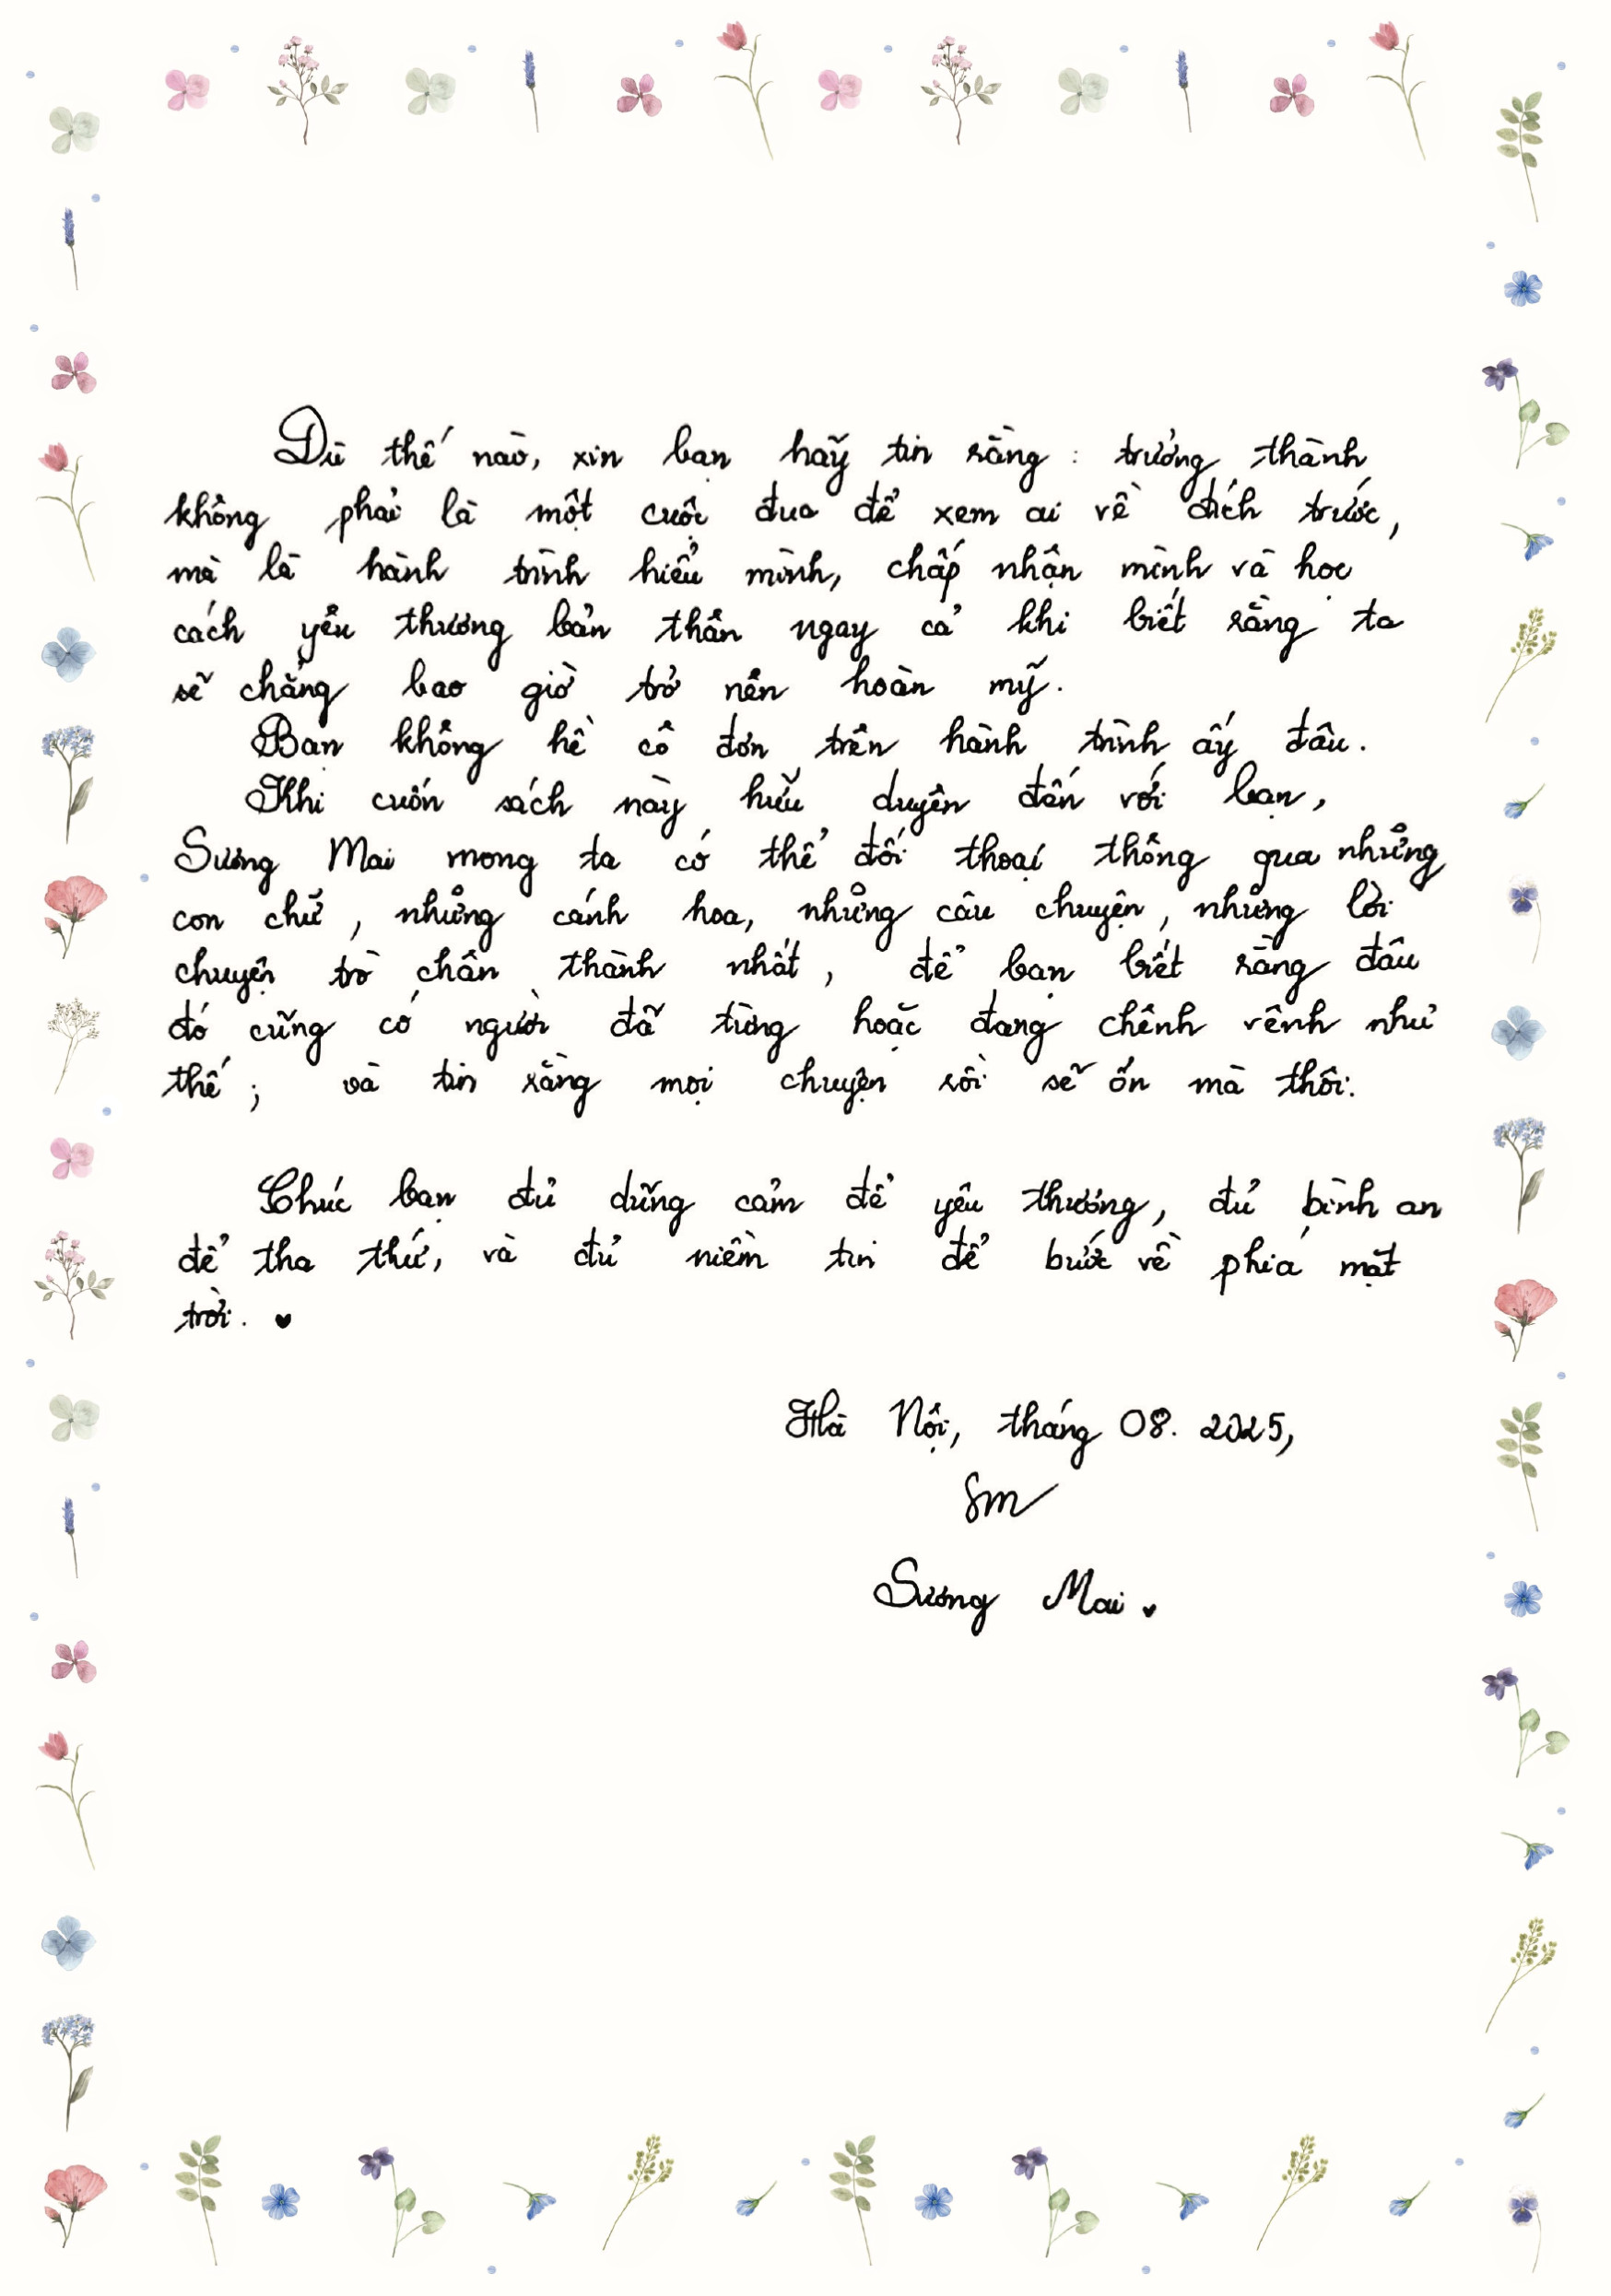 Dù thế nào, xin bạn hãy tin rằng : trưởng thành
không phải là một cuộc đua để xem ai về đích trước,
mà là hành trình hiểu mình, chấp nhận mình và học
cách yêu thương bản thân ngay cả khi biết rằng ta
sẽ chẳng bao giờ trở nên hoàn mỹ.
Bạn không hề cô đơn trên hành trình ấy đâu.
Khi cuốn sách này hữu duyên đến với bạn,
Sương Mai mong ta có thể đối thoại thông qua những
con chữ, những cánh hoa, những câu chuyện, những lời
chuyện trò chân thành nhất, để bạn biết rằng đâu
đó cũng có người đã từng hoặc đang chênh vênh như
thế ; và tin rằng mọi chuyện rồi sẽ ổn mà thôi.
Chúc bạn đủ dũng cảm để yêu thương, đủ bình an
để tha thứ, và đủ niềm tin để bước về phía mặt
trời. ♥
Hà Nội, tháng 08. 2025,
SM
Sương Mai ♥